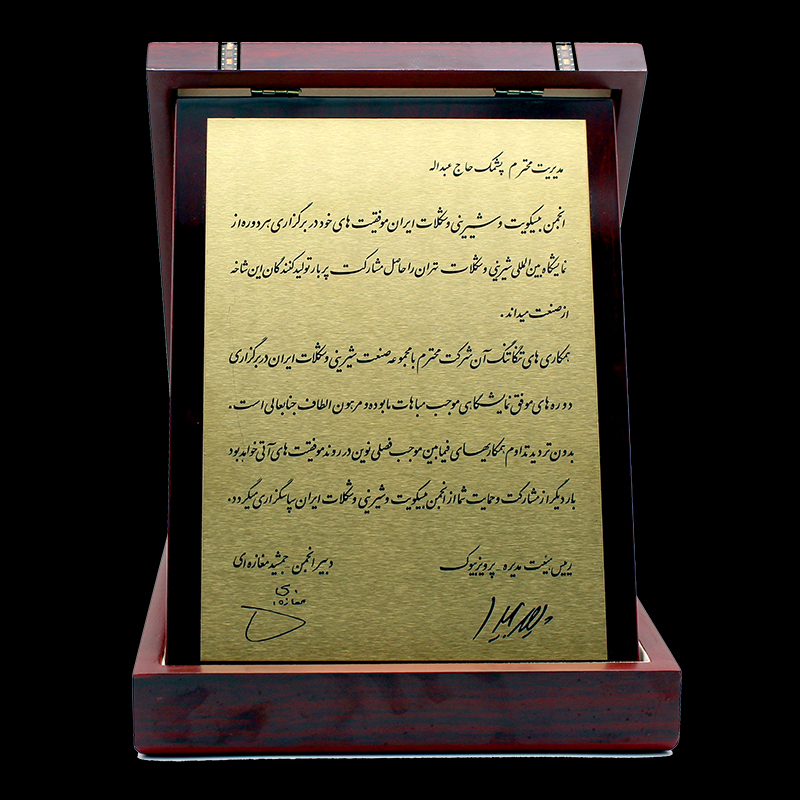 مدیریت محترم پشمک حاج عبداله
انجمن بیسکویت و شیرینی و شکلات ایران موفقیت های خود در برگزاری هر دوره از
نمایشگاه بین المللی شیرینی و شکلات تهران را حاصل مشارکت پربار تولیدکنندگان این شاخه
از صنعت میداند .
همکاری های تنگاتنگ آن شرکت محترم با مجموعه صنعت شیرینی و شکلات ایران در برگزاری
دوره های موفق نمایشگاهی موجب مباهات ما بوده و مرهون الطاف جنابعالی است .
بدون تردید تداوم همکاریهای فیمابین موجب فصلی نوین در روند موفقیت های آتی خواهد بود
بار دیگر از مشارکت و حمایت شما از انجمن بیسکویت و شیرینی و شکلات ایران سپاسگزاری میگردد.
رییس هیئت مدیره - پرویز بیوک
دبیر انجمن جمشید مغازه ای